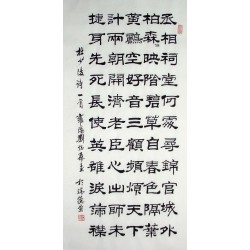 丞相祠堂何處尋錦官城外
柏森森映階碧草自春色隔葉
黃鸝空好音三顧頻煩天下
計兩朝開濟老臣心出師未
捷身先死長使英雄淚滿襟
杜少陵詩一首